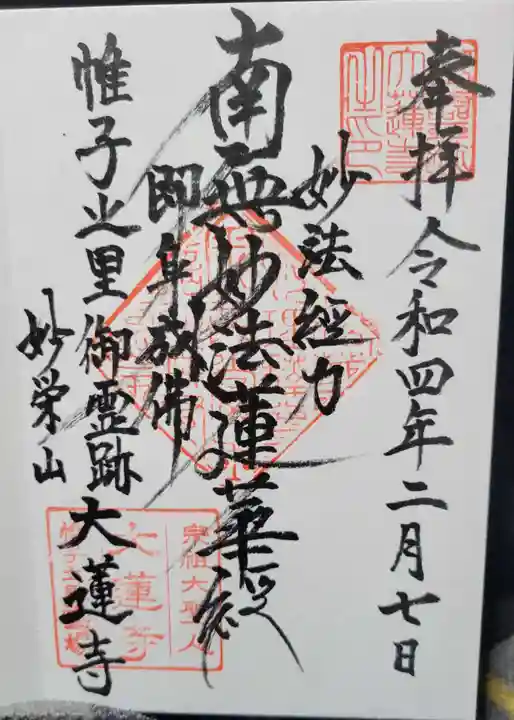 奉拝 令和四年二月七日
妙法經力
南無妙法蓮華経
即身成佛
帷子之里御霊跡
妙栄山 大蓮寺
宗祖大聖人
大蓮寺